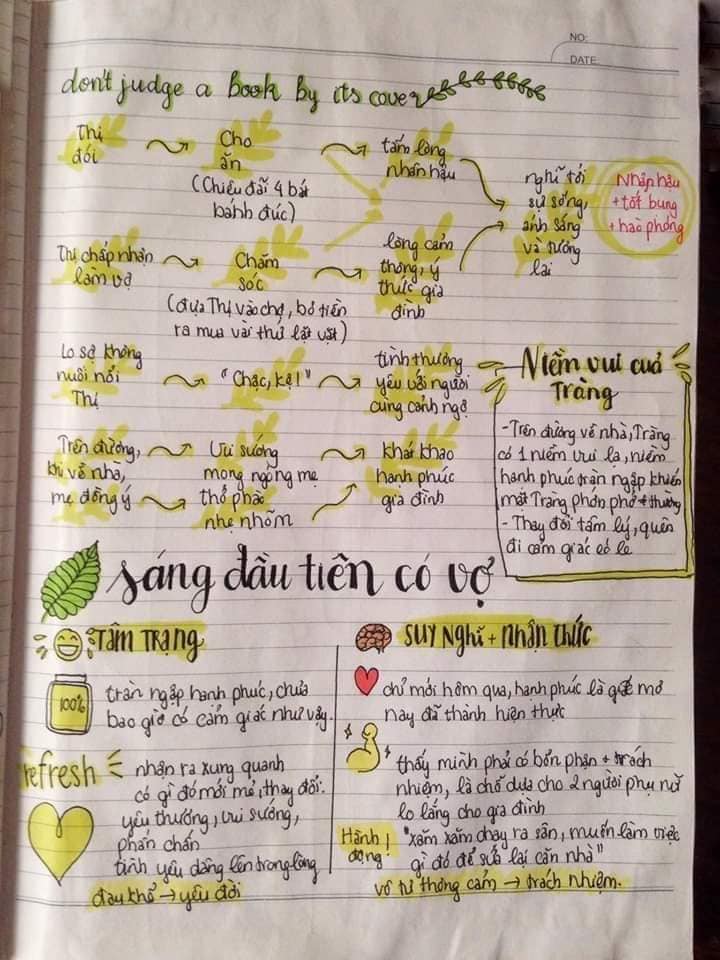 NO:
DATE
don't judge a book by its cover
Thị
đói
Cho
ăn
(Chiêu đãi 4 bát
bánh đúc)
tấm lòng
nhân hậu
nghĩ tới
sự sống,
ánh sáng
và tương
lai
Nhập hậu
+ tốt bụng
+ hào phóng
Thị chấp nhận
làm vợ
Chăm
sóc
(đưa Thị vào chợ, bỏ tiền
ra mua vài thứ lặt vặt)
lòng cảm
thông, ý
thức gia
đình
Lo sợ không
nuôi nổi
Thị
"Chậc, kệ!"
tình thương
yêu với người
cùng cảnh ngộ
Trên đường,
khi về nhà,
mẹ đồng ý
Vui sướng
mong ngóng mẹ
thở phào
nhẹ nhõm
khát khao
hạnh phúc
gia đình
Niềm vui của
Tràng
- Trên đường về nhà, Tràng
có 1 niềm vui lạ, niềm
hạnh phúc tràn ngập khiến
mặt Tràng phớn phở + thường
- Thay đổi tâm lý, quên
đi cảm giác éo le
sáng đầu tiên có vợ
TÂM TRẠNG
100%
tràn ngập hạnh phúc, chưa
bao giờ có cảm giác như vậy.
refresh
nhận ra xung quanh
có gì đó mới mẻ, thay đổi.
yêu thương, vui sướng,
phấn chấn
tình yêu dâng lên trong lòng
đau khổ → yêu đời
SUY NGHĨ + NHẬN THỨC
chỉ mới hôm qua, hạnh phúc là giấc mơ
nay đã thành hiện thực
thấy mình phải có bổn phận + trách
nhiệm, là chỗ dựa cho 2 người phụ nữ
lo lắng cho gia đình
Hành
động!
"xăm xăm chạy ra sân, muốn làm việc
gì đó để sửa lại căn nhà"
vô tư thông cảm → trách nhiệm.